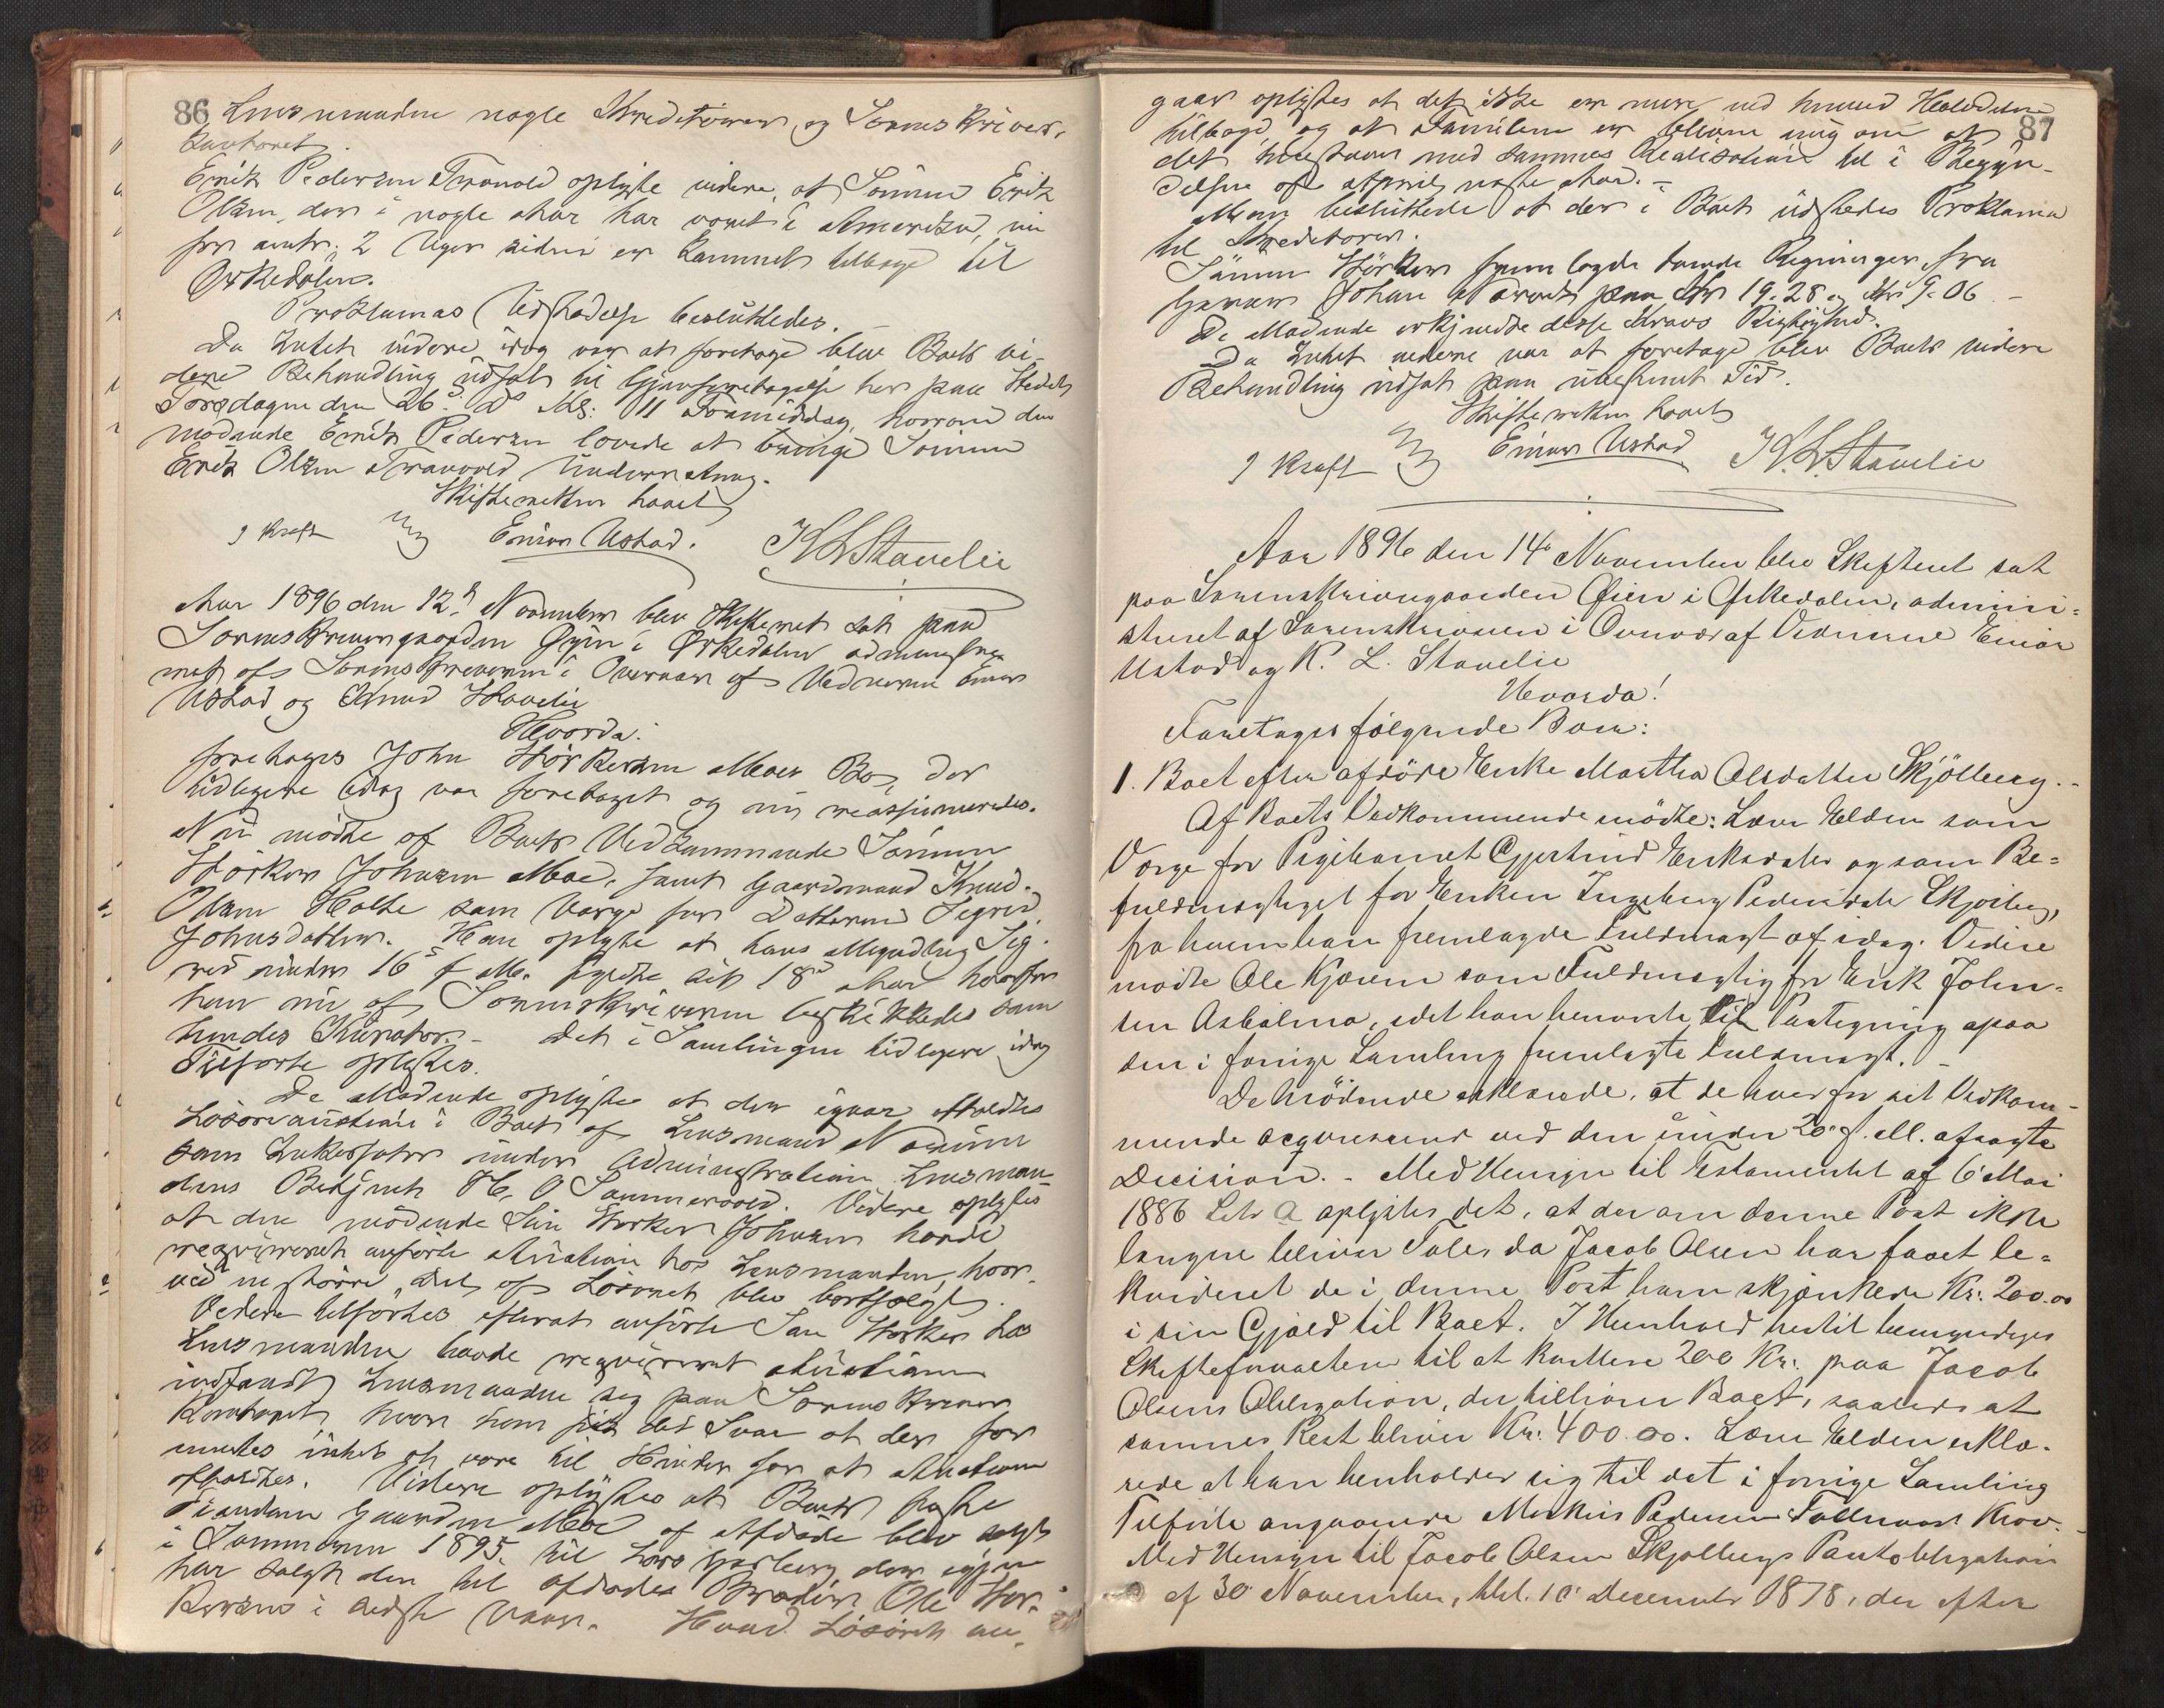 86 Lensmanden nogle Kreditorer og Sorenskriver-
kontoret.
Erik Pedersen Tranvold oplyste videre, at Sönnen Erik
Olsen, der i nogle Aar har været i Amerika, nu
for circa 2 Uger siden er kommet tilbage til
Örkedalen.
Proklamas Udstedelse besluttedes. -
Da Intet videre idag var at foretage blev Boets vi-
dere Behandling udsat til Gjenforetagelse her paa Stedet
Torsdagen den 26de ds Kl. 11 Formiddag, hvorom den
mödende Erik Pedersen lovede at bringe Sönnen
Erik Olsen Tranvold Underretning.
Skifteretten hævet
J Kraft Einar Ustad. K L Stavelie
Aar 1896 den 12te November blev Skifteret sat paa
Sorenskrivergaarden Öyen i Örkedalen administre-
ret af Sorenskriveren i Overvær af Vidnerne Einar
Ustad og Knud Stavelie
Hvorda:
foretages John Störkersen Moes Bo, der
tidligere idag var foretaget og nu reassumeredes.
Nu mödte af Boets Vedkommende Sönnen
Störker Johnsen Moe, samt Gaardmand Knud
Olsen Holte som Værge for Datteren Sigrid
Johnsdatter. Han oplyste at hans Myndling Sig-
rid under 16de f. M. fyldte sit 18de Aar hvorfor
han nu af Sorenskriveren beskikkedes som
hendes Kurator. - Det i Samlingen tidligere idag
Tilförte oplystes.
De Mödende oplyste at der igaar afholdtes
Lösöreauktion i Boet af Lensmand
som Inkassator under Administration Lensman-
dens Betjent H. O Sommervold. Videre oplystes
at den mödende Sön Störker Johnsen havde
reqvireret anförte Auktion hos Lensmanden, hvor-
ved en större Del af Lösöret blev bortsolgt.
Videre tilförtes efterat anförte Sön Störker hos
Lensmanden havde reqvireret Auktionen
indfandt Lensmanden sig paa Sorenskriver
Kontoret, hvor ham fik det Svar at der for-
mentes intet at være til Hinder for at Auktionen
afholdtes. Videre oplystes at Boets faste
Eiendom Gaarden Moe af Afdöde blev solgt
i Sommeren 1895 til Lars der igjen
har solgt den til Afdödes Broder Ole Stör-
kersen i sidste Vaar. Hvad Lösöret an-
87
gaar oplystes at det ikke er mere ved Halvdelen
tilbage, og at Familien er bleven enig om at
det med sammes Realisation til i Begyn-
delsen af April næste Aar. -
Man besluttede at der i Boet udstedes Proklama
til Kreditorer.
Sönnen Störker fremlagde tvende Regninger fra
Garver Johan paa Kr 19.28 og Kr 9.06 -
De Mödende erkjendte disse Kravs Rigtighed.
Da Intet videre var at foretage blev Boets videre
Behandling udsat paa ubestemt Tid.
Skifteretten hævet
J Kraft Einar Ustad K. L Stavelie
Aar 1896 den 14de November blev Skifteret sat
paa Sorenskrivergaarden Öien i Örkedalen, admini-
streret af Sorenskriveren i Overvær af Vidnerne Einar
Ustad og K. L. Stavelie
Hvorda!
Foretages fölgende Boer:
1. Boet efter afdöde Enke Martha Olsdatter Skjölberg.-
Af Boets Vedkommende mödte: Lars Elden som
Værge for Pigebarnet Gjertrud Eriksdatter og som Be-
fuldmægtiget for Enken Ingeborg Pedersdatter Skjölberg,
fra hvem han fremlagde Fuldmagt af idag. Videre
mödte Ole Kjörem som Fuldmægtig for Erik John-
sen Asbölmo, idet han henviste til Paategning paa
den i forrige Samling fremlagte Fuldmagt. -
De Mödende erklærede, at de hver for sit Vedkom-
mende acqviescerer ved den under 20de f. M. afsagte
Decision. - Med Hensyn til Testamentet af 6te Mai
1886 Litr a oplystes det, at der om denne Post ikke
længere bliver Tale, da Jacob Olsen har faaet le-
kvideret de i denne Post ham skjænkede Kr. 200.00
i sin Gjæld til Boet. I Henhold hertil bemyndiges
Skifteforvalteren til at kvittere 200 Kr. paa Jacob
Olsens Obligation, der tilhörer Boet, saaledes at
sammes Rest bliver Kr. 400.00. Lars Elden erklæ-
rede at han henholder sig til det i forrige Samling
Tilförte angaaende Markus Pedersen Krav. -
Med Hensyn til Jacob Olsen Skjölbergs Pantobligation
af 30te November, thl. 10de December 1878, der efter